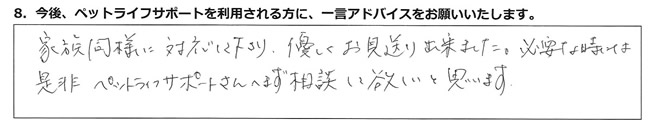 8. 今後、ペットライフサポートを利用される方に、一言アドバイスをお願いいたします。
家族同様に対応して下さり、優しくお見送り出来ました。必要な時は
是非ペットライフサポートさんへまず相談して欲しいと思います。